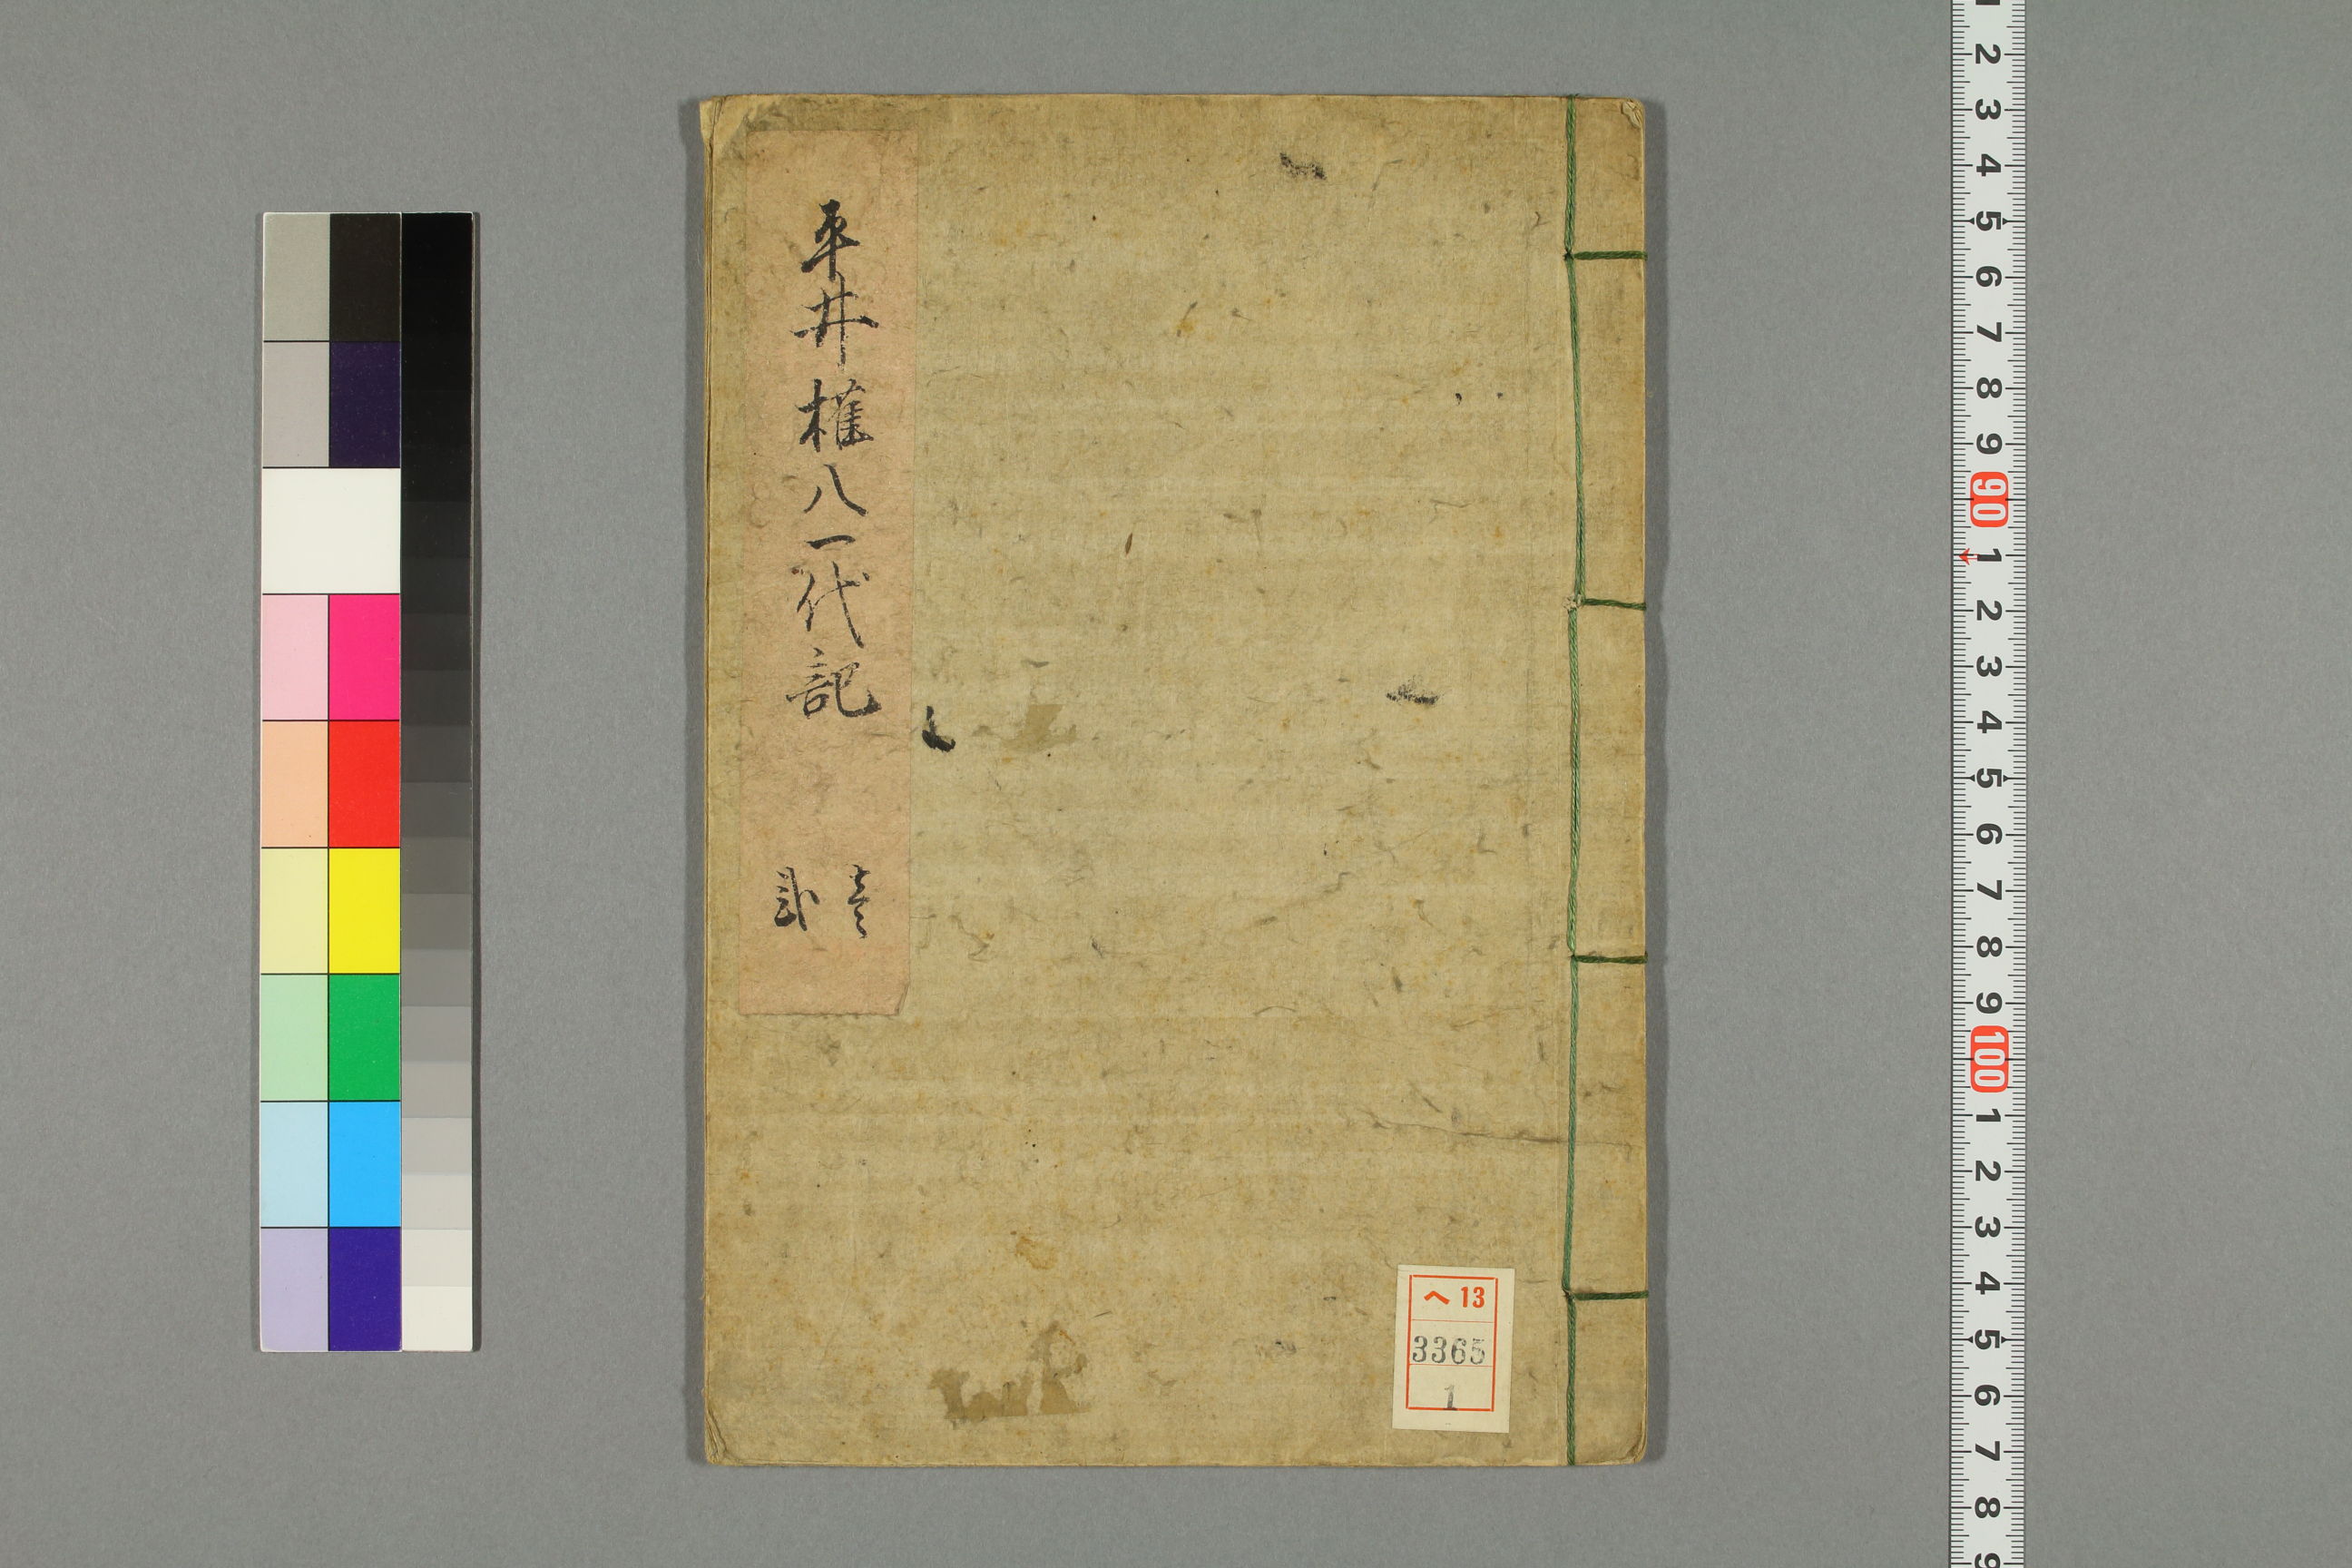 平井権八一代記
壱
弐
へ 13
3365
1
1
2
3
4
5
6
7
8
9
90
1
2
3
4
5
6
7
8
9
100
1
2
3
4
5
6
7
8
9